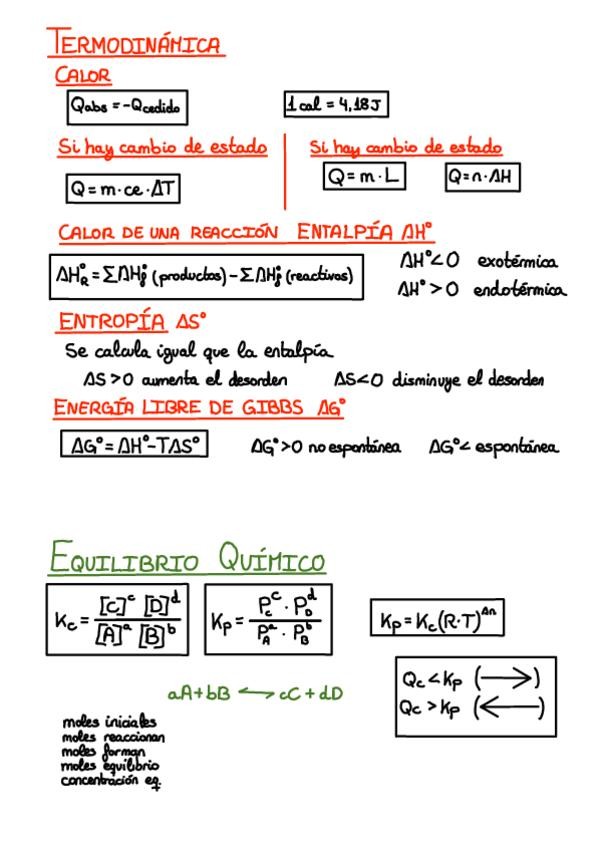 TERMODINÁMICA
CALOR
Qabs = -Qcedido
1 cal = 4,18J
Si hay cambio de estado
Q = m · ce · ΔT
Si hay cambio de estado
Q = m · L
Q = n · ΔH
CALOR DE UNA REACCIÓN ENTALPÍA ΔH°
ΔH°R = ΣΔH°f (productos) - ΣΔH°f (reactivos)
ΔH° < 0 exotérmica
ΔH° > 0 endotérmica
ENTROPÍA ΔS°
Se calcula igual que la entalpía
ΔS > 0 aumenta el desorden ΔS < 0 disminuye el desorden
ENERGÍA LIBRE DE GIBBS ΔG°
ΔG° = ΔH° - TΔS° ΔG° > 0 no espontánea ΔG° < espontánea
EQUILIBRIO QUÍMICO
Kc = [C]^c [D]^d / [A]^a [B]^b
Kp = P_C^c · P_D^d / P_A^a · P_B^b
Kp = Kc (R·T)^Δn
Qc < Kp (→)
Qc > Kp (←)
aA + bB ⟷ cC + dD
moles iniciales
moles reaccionan
moles forman
moles equilibrio
concentración eq.